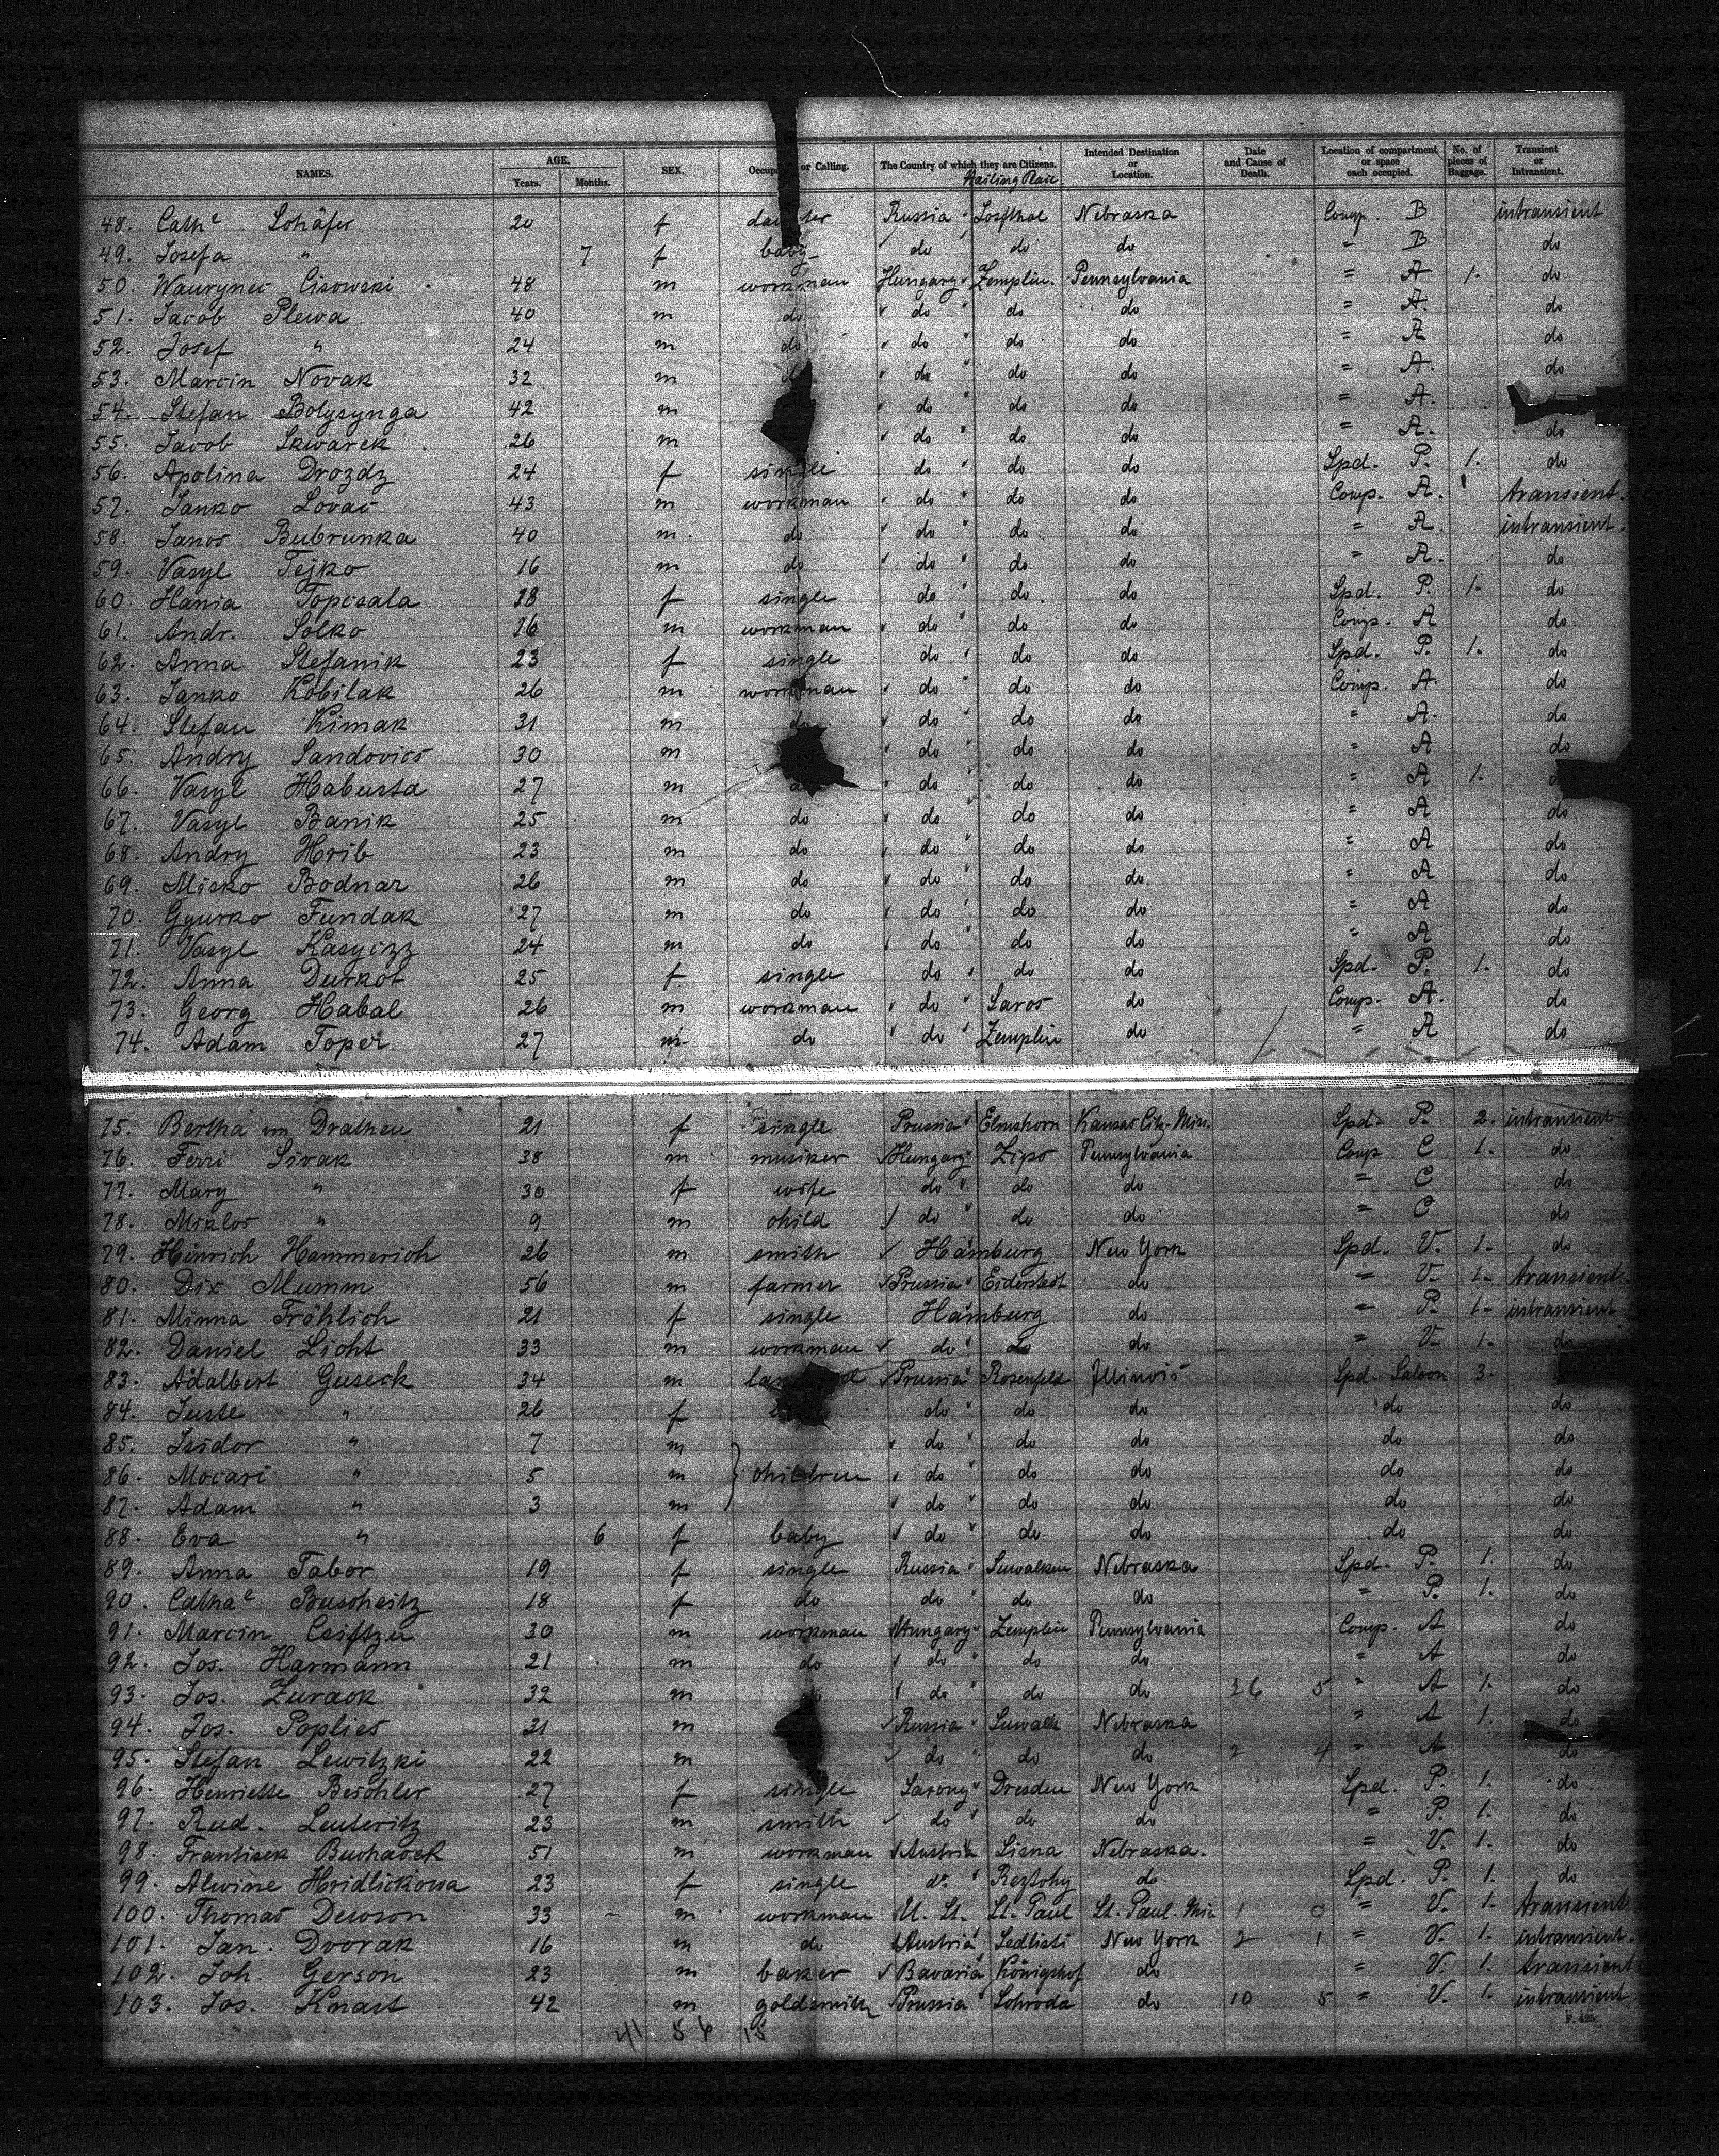 NAMES. AGE. Years. Months. SEX. Occupa or Calling. The Country of which they are Citizens. Intended Destination or Location. Date and Cause of Death. Location of compartment or space each occupied. No. of pieces of Baggage. Transient or Intransient.
48. Cathe Schäfer 20 f Russia Nebraska Comp. B intransient
49. Josefa " 7 f baby do do do " B do
50. Wawrynec Cisowski 48 m workman Hungary Zemplin. Pennsylvania " A 1. do
51. Jacob Plewa 40 m do do do do " A. do
52. Josef " 24 m do do do do " A do
53. Marcin Novak 32 m do do do " A. do
54. Stefan Bolysynga 42 m do do do " A.
55. Jacob Skwarek 26 m do do do " A. do
56. Apolina Drozdz 24 f single do do do Spd. P. 1. do
57. Janko Lovas 43 m workman do do do Comp. A. transient.
58. Janos Bubrunka 40 m. do do do. do " A. intransient.
59. Vasyl Tejko 16 m do do do do " A. do
60. Hania Topcsala 18 f single do do. do Spd. P. 1. do
61. Andr. Solko 26 m workman do do do Comp. A do
62. Anna Stefanik 23 f single do do do Spd. P. 1. do
63. Janko Kobilak 26 m workman do do do Comp. A. do
64. Stefan Kimak 31 m do do do do " A. do
65. Andry Sandovics 30 m do do do " A do
66. Vasyl Habusta 27 m do do do " A 1.
67. Vasyl Banik 25 m do do do do " A do
68. Andry Hrib 23 m do do do do " A do
69. Misko Bodnar 26 m do do do do. " A do
70. Gyurko Fundak 27 m do do do do " A do
71. Vasyl Kasyczz 24 m do do do do " A do
72. Anna Durkot 25 f single do do do Spd. P. 1. do
73. Georg Habal 26 m workman do Saros do Comp. A. do
74. Adam Toper 27 m do do Zemplin do " A do
75. Bertha von Drathen 21 f single Prussia Elmshorn Kansas City. Miss. Spd. P. 2. intransient
76. Ferri Sivak 38 m musiker Hungary Zips Pennsylvania Comp C 1. do
77. Mary " 30 f wife do do do " C do
78. Miklos " 9 m child do do do " C do
79. Hinrich Hammerich 26 m smith Hamburg New York Spd. V. 1. do
80. Dix Mumm 56 m farmer Prussia Eiderstedt do " V. 1. transient
81. Minna Fröhlich 21 f single Hamburg do " P. 1. intransient
82. Daniel Licht 33 m workman do do do " V. 1. do
83. Adalbert Guseck 34 m Prussia Rosenfeld Illinois Spd. Saloon 3.
84. Juste " 26 f do do do do do
85. Isidor " 7 m do do do do do
86. Mocari " 5 m children do do do do do
87. Adam " 3 m do do do do do
88. Eva " 6 f baby do do do do do
89. Anna Tabor 19 f single Russia Suwalken Nebraska Spd. P. 1. do
90. Cathae Buscheitz 18 f do do do do " P. 1. do
91. Marcin Csiftzu 30 m workman Hungary Zemplin Pennsylvania Comp. A do
92. Jos. Harmann 21 m do do do do " A do
93. Jos. Zurack 32 m do do do 26 5 " A 1. do
94. Jos. Poplies 31 m Russia Suwalk Nebraska " A 1. do
95. Stefan Lewitzki 22 m do do do 2 4 " A do
96. Henriette Beichler 27 f single Saxony Dresden New York Spd. P. 1. do
97. Rud. Leuteritz 23 m smith do do do " P. 1. do
98. Frantisek Buchacek 51 m workman Austria Lisna Nebraska. " V. 1. do
99. Alwine Hridlickowa 23 f single do Reztohy do. Spd. P. 1. do
100. Thomas Dewson 33 m workman U. St. St. Paul St. Paul. Min 1 0 " V. 1. transient.
101. Jan. Dvorak 16 m do Austria Sedlisti New York 2 1 " V. 1. intransient.
102. Joh. Gerson 23 m baker Bavaria Königshof do " V. 1. transient
103. Jos. Knast 42 m goldsmith Prussia Schroda do 10 5 " V. 1. intransient.
41 56 15